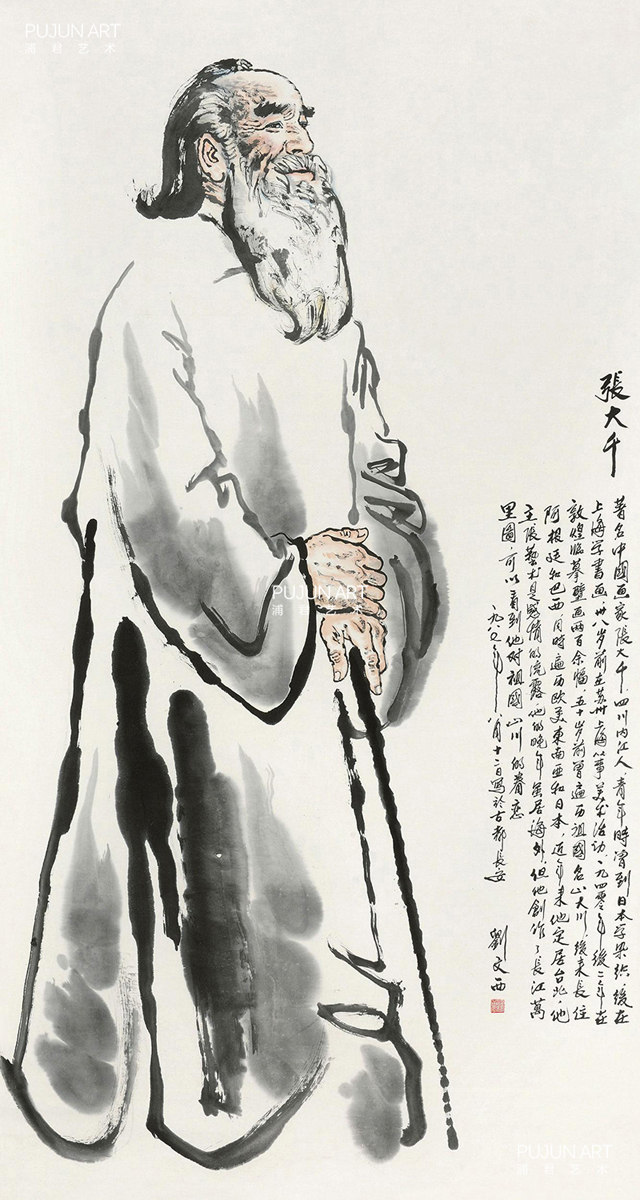 PUJUN ART
浦君艺术
張大千
著名中國画家張大千,四川内江人,青年時曾到日本学染织,後在
上海学書画,卅八岁前在苏州上海从事美术活动,一九四零年後二年在
敦煌临摹壁画两百余幅,五十岁前曾遍历祖國名山大川,後来長住
阿根廷和巴西,同時遍历欧美東南亚和日本,近年来他定居台北,他
主張藝术是感情的流露,他的晚年虽居海外,但他創作了長江萬
里圖,可以看到他对祖國山川的眷恋
一九八〇年八月十二日寫於古都長安
劉文西
PUJUN ART
浦君艺术
PUJUN ART
浦君艺术